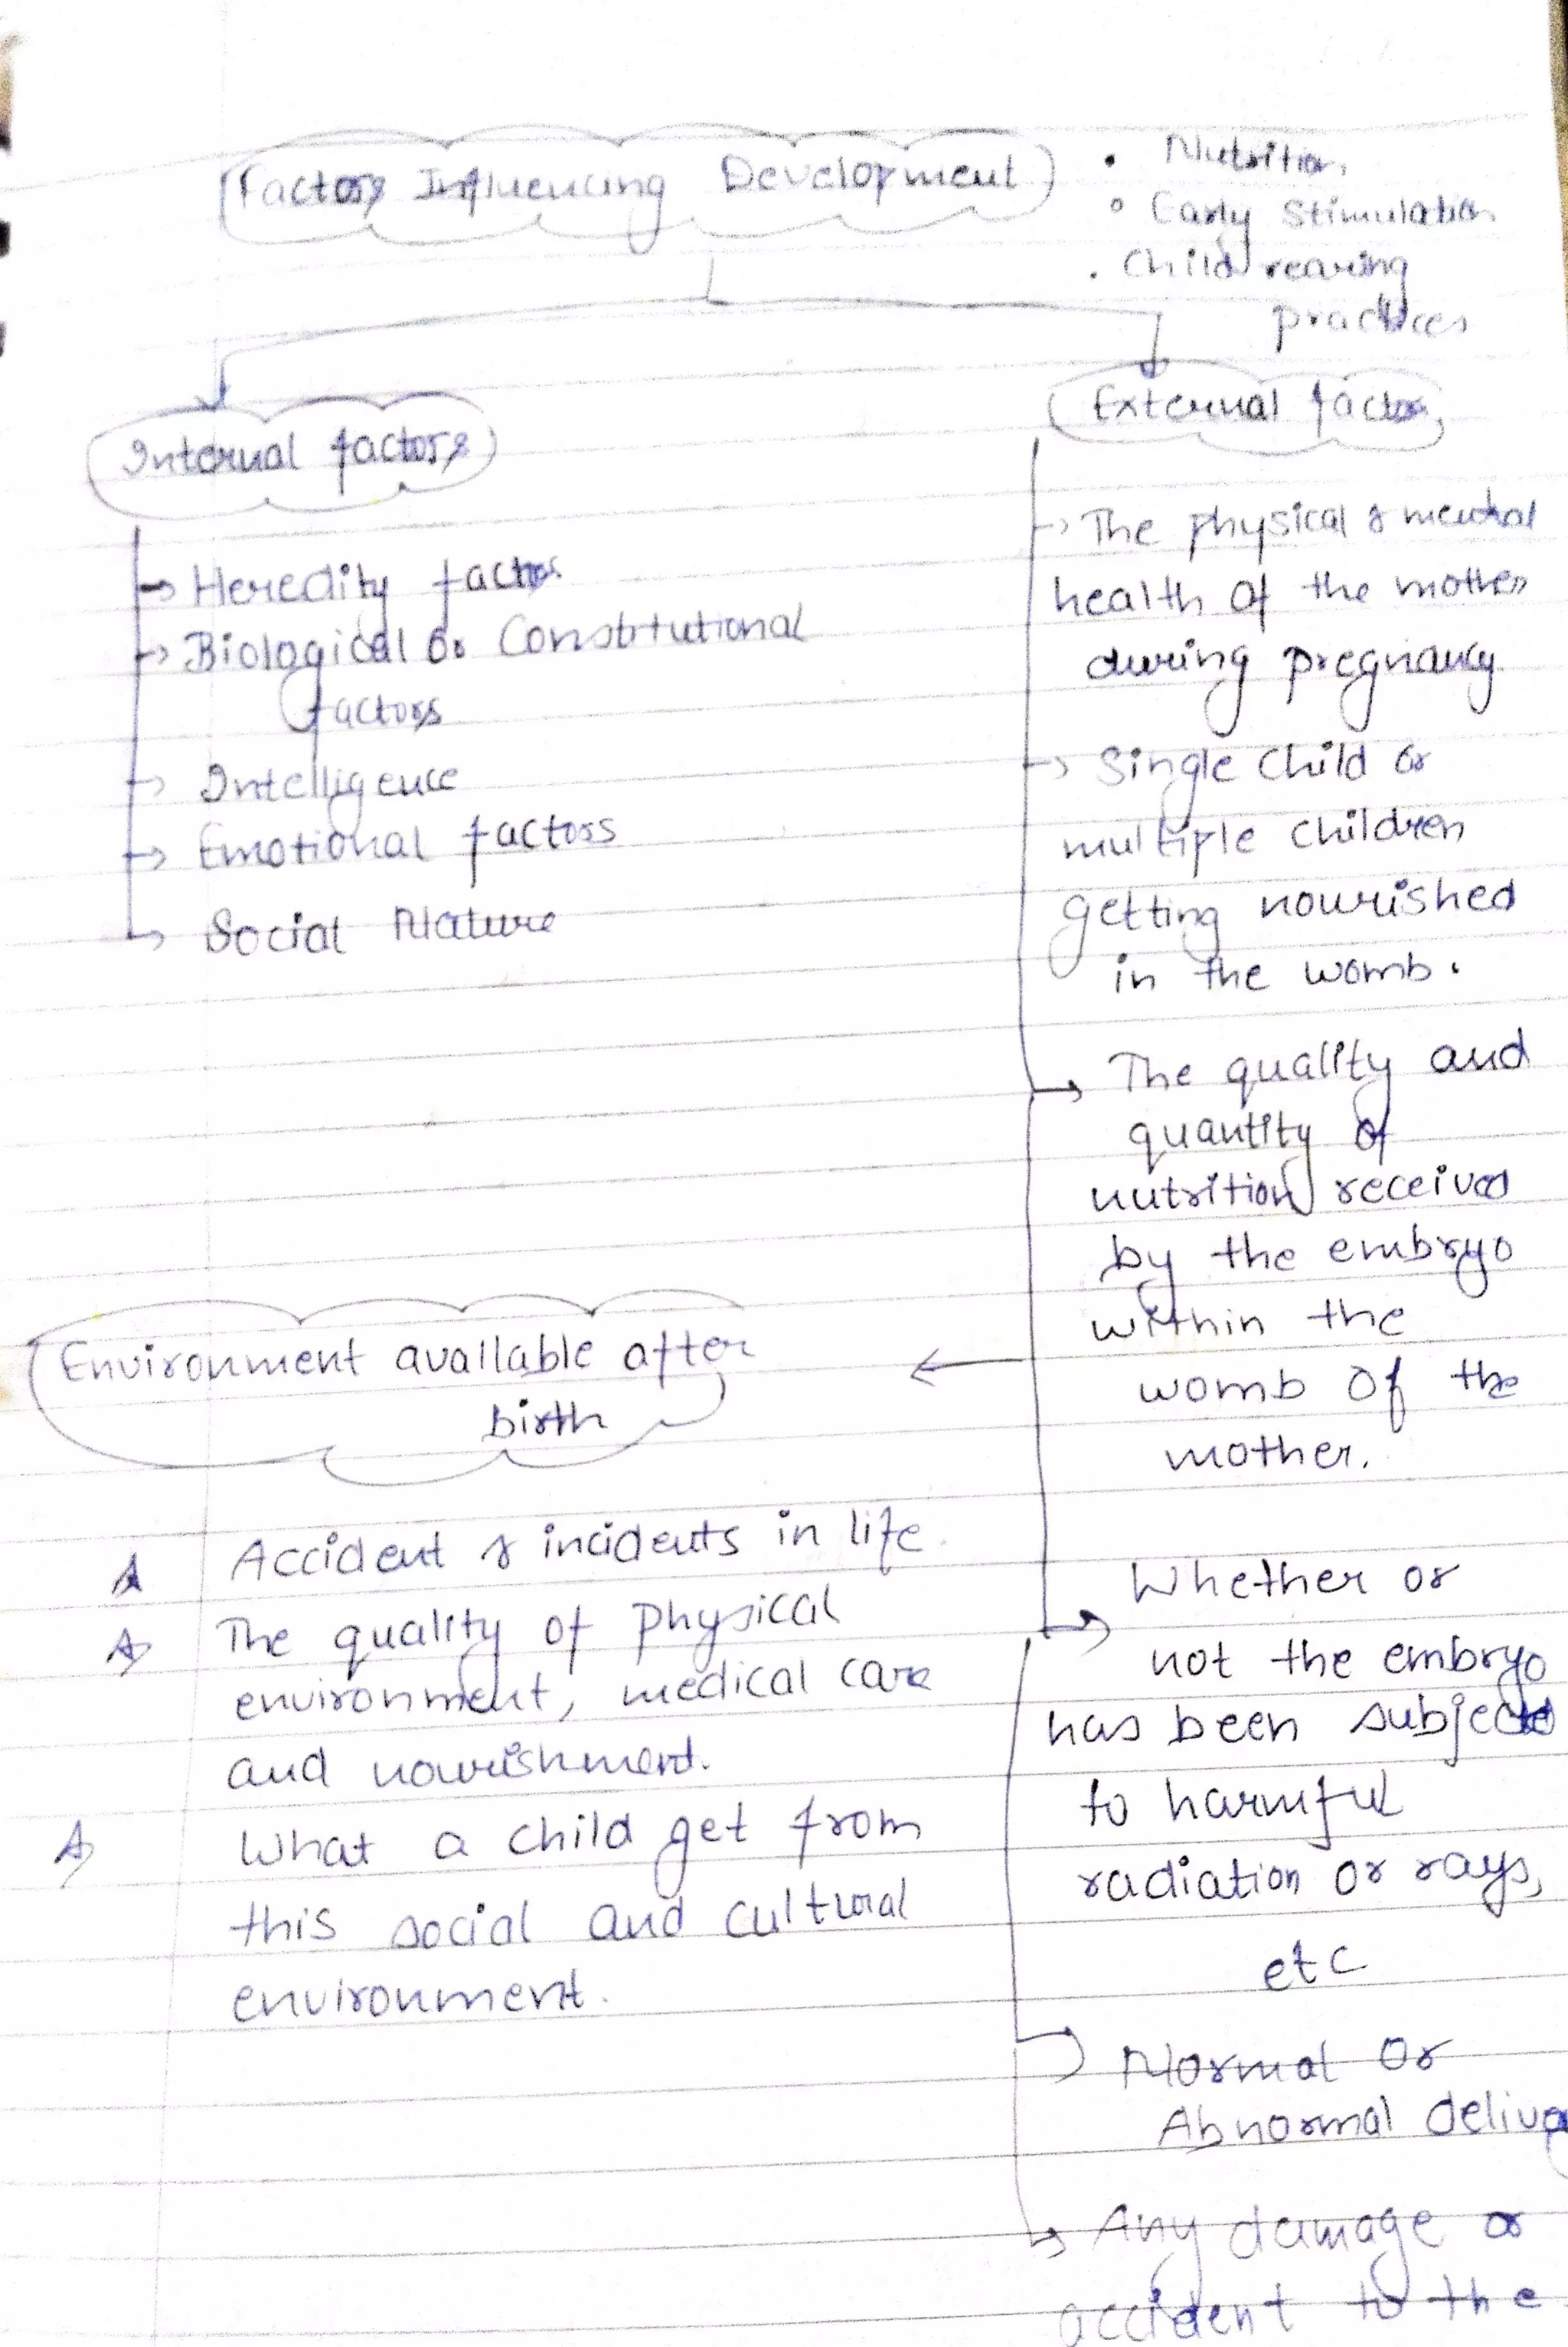 Factors Influencing Development
• Nutrition
• Early Stimulation
• Child rearing
practices
Internal factors
→ Heredity factors
→ Biological or Constitutional
factors
→ Intelligence
→ Emotional factors
→ Social Nature
External factors
→ The physical & mental
health of the mother
during pregnancy
→ Single child or
multiple children
getting nourished
in the womb.
→ The quality and
quantity of
nutrition received
by the embryo
within the
womb of the
mother.
→ Whether or
not the embryo
has been subjected
to harmful
radiation or rays,
etc
→ Normal or
Abnormal delivery
→ Any damage or
accident to the
Environment available after
birth
Accident & incidents in life.
The quality of physical
environment, medical care
and nourishment.
What a child get from
this social and cultural
environment.